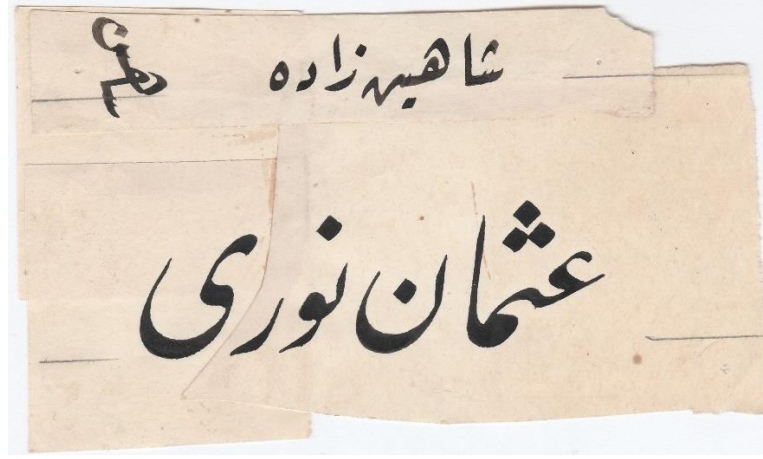 شاهین زاده
عثمان نوری